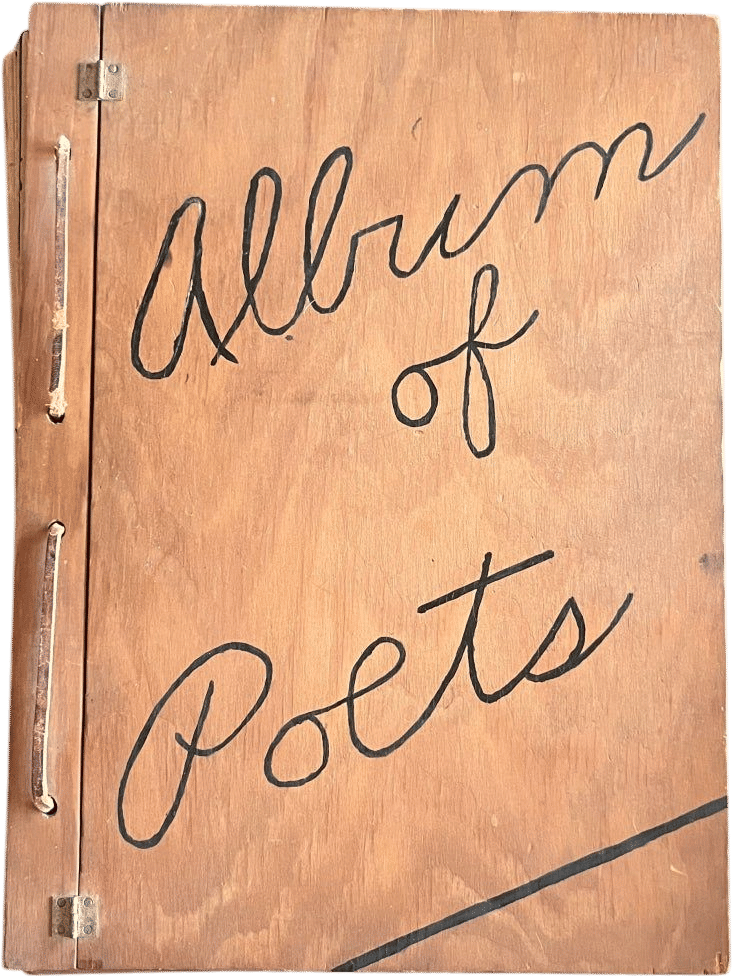 Album
of
Poets